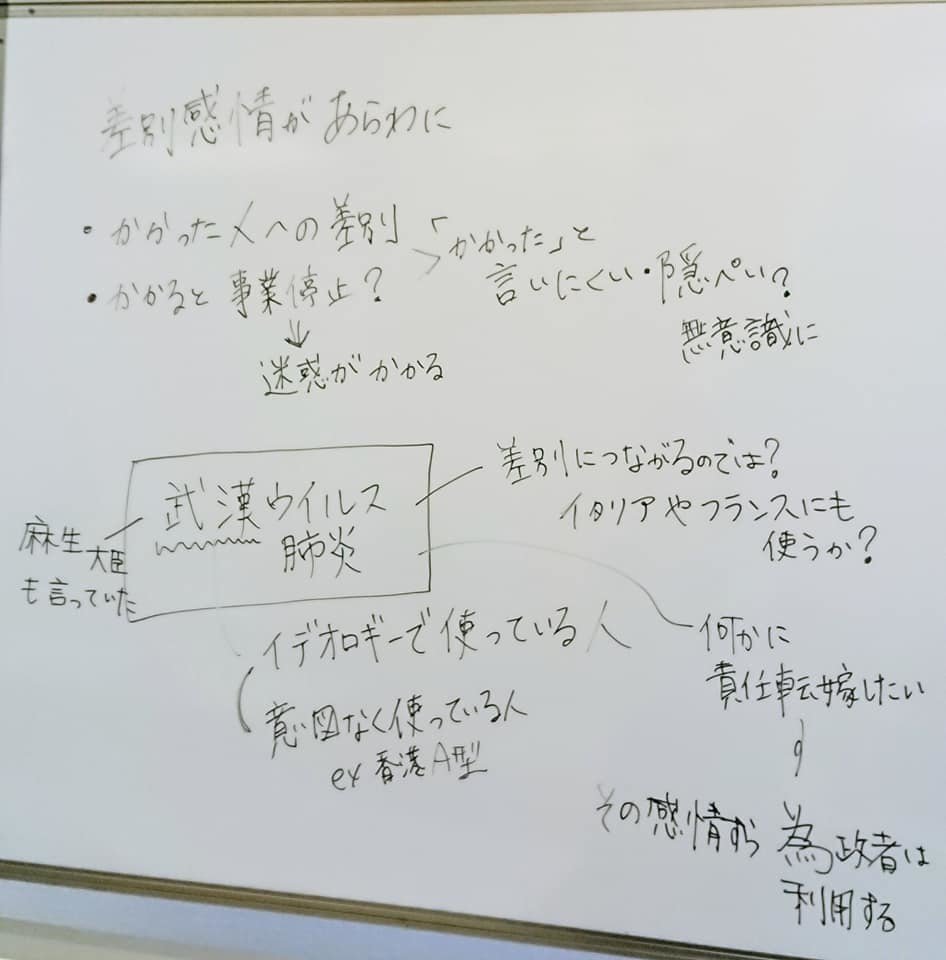 差別感情があらわに
・かかった人への差別
・かかると事業停止?
↓
迷惑がかかる
「かかった」と
言いにくい・隠ぺい?
無意識に
武漢ウイルス
肺炎
麻生大臣
も言っていた
差別につながるのでは?
イタリアやフランスにも
使うか?
イデオロギーで使っている人
意図なく使っている人
ex 香港A型
何かに
責任転嫁したい
その感情すら為政者は
利用する